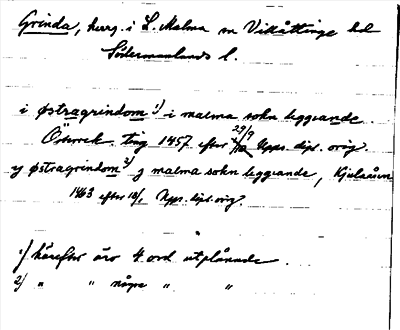 Grinda, herrg. i L. Malma sn Vikåttinge hd
Södermanlands l.
i østragrindom 1) i malma sokn liggiande.
ting 1457 efter 29/9 Upps. dipl. orig.
y østragrindom 2) j malma sokn liggiande,
1463 efter 13/1 Upps. dipl. orig.
1) härefter äro 4 ord utplånade.
2) " " några " "